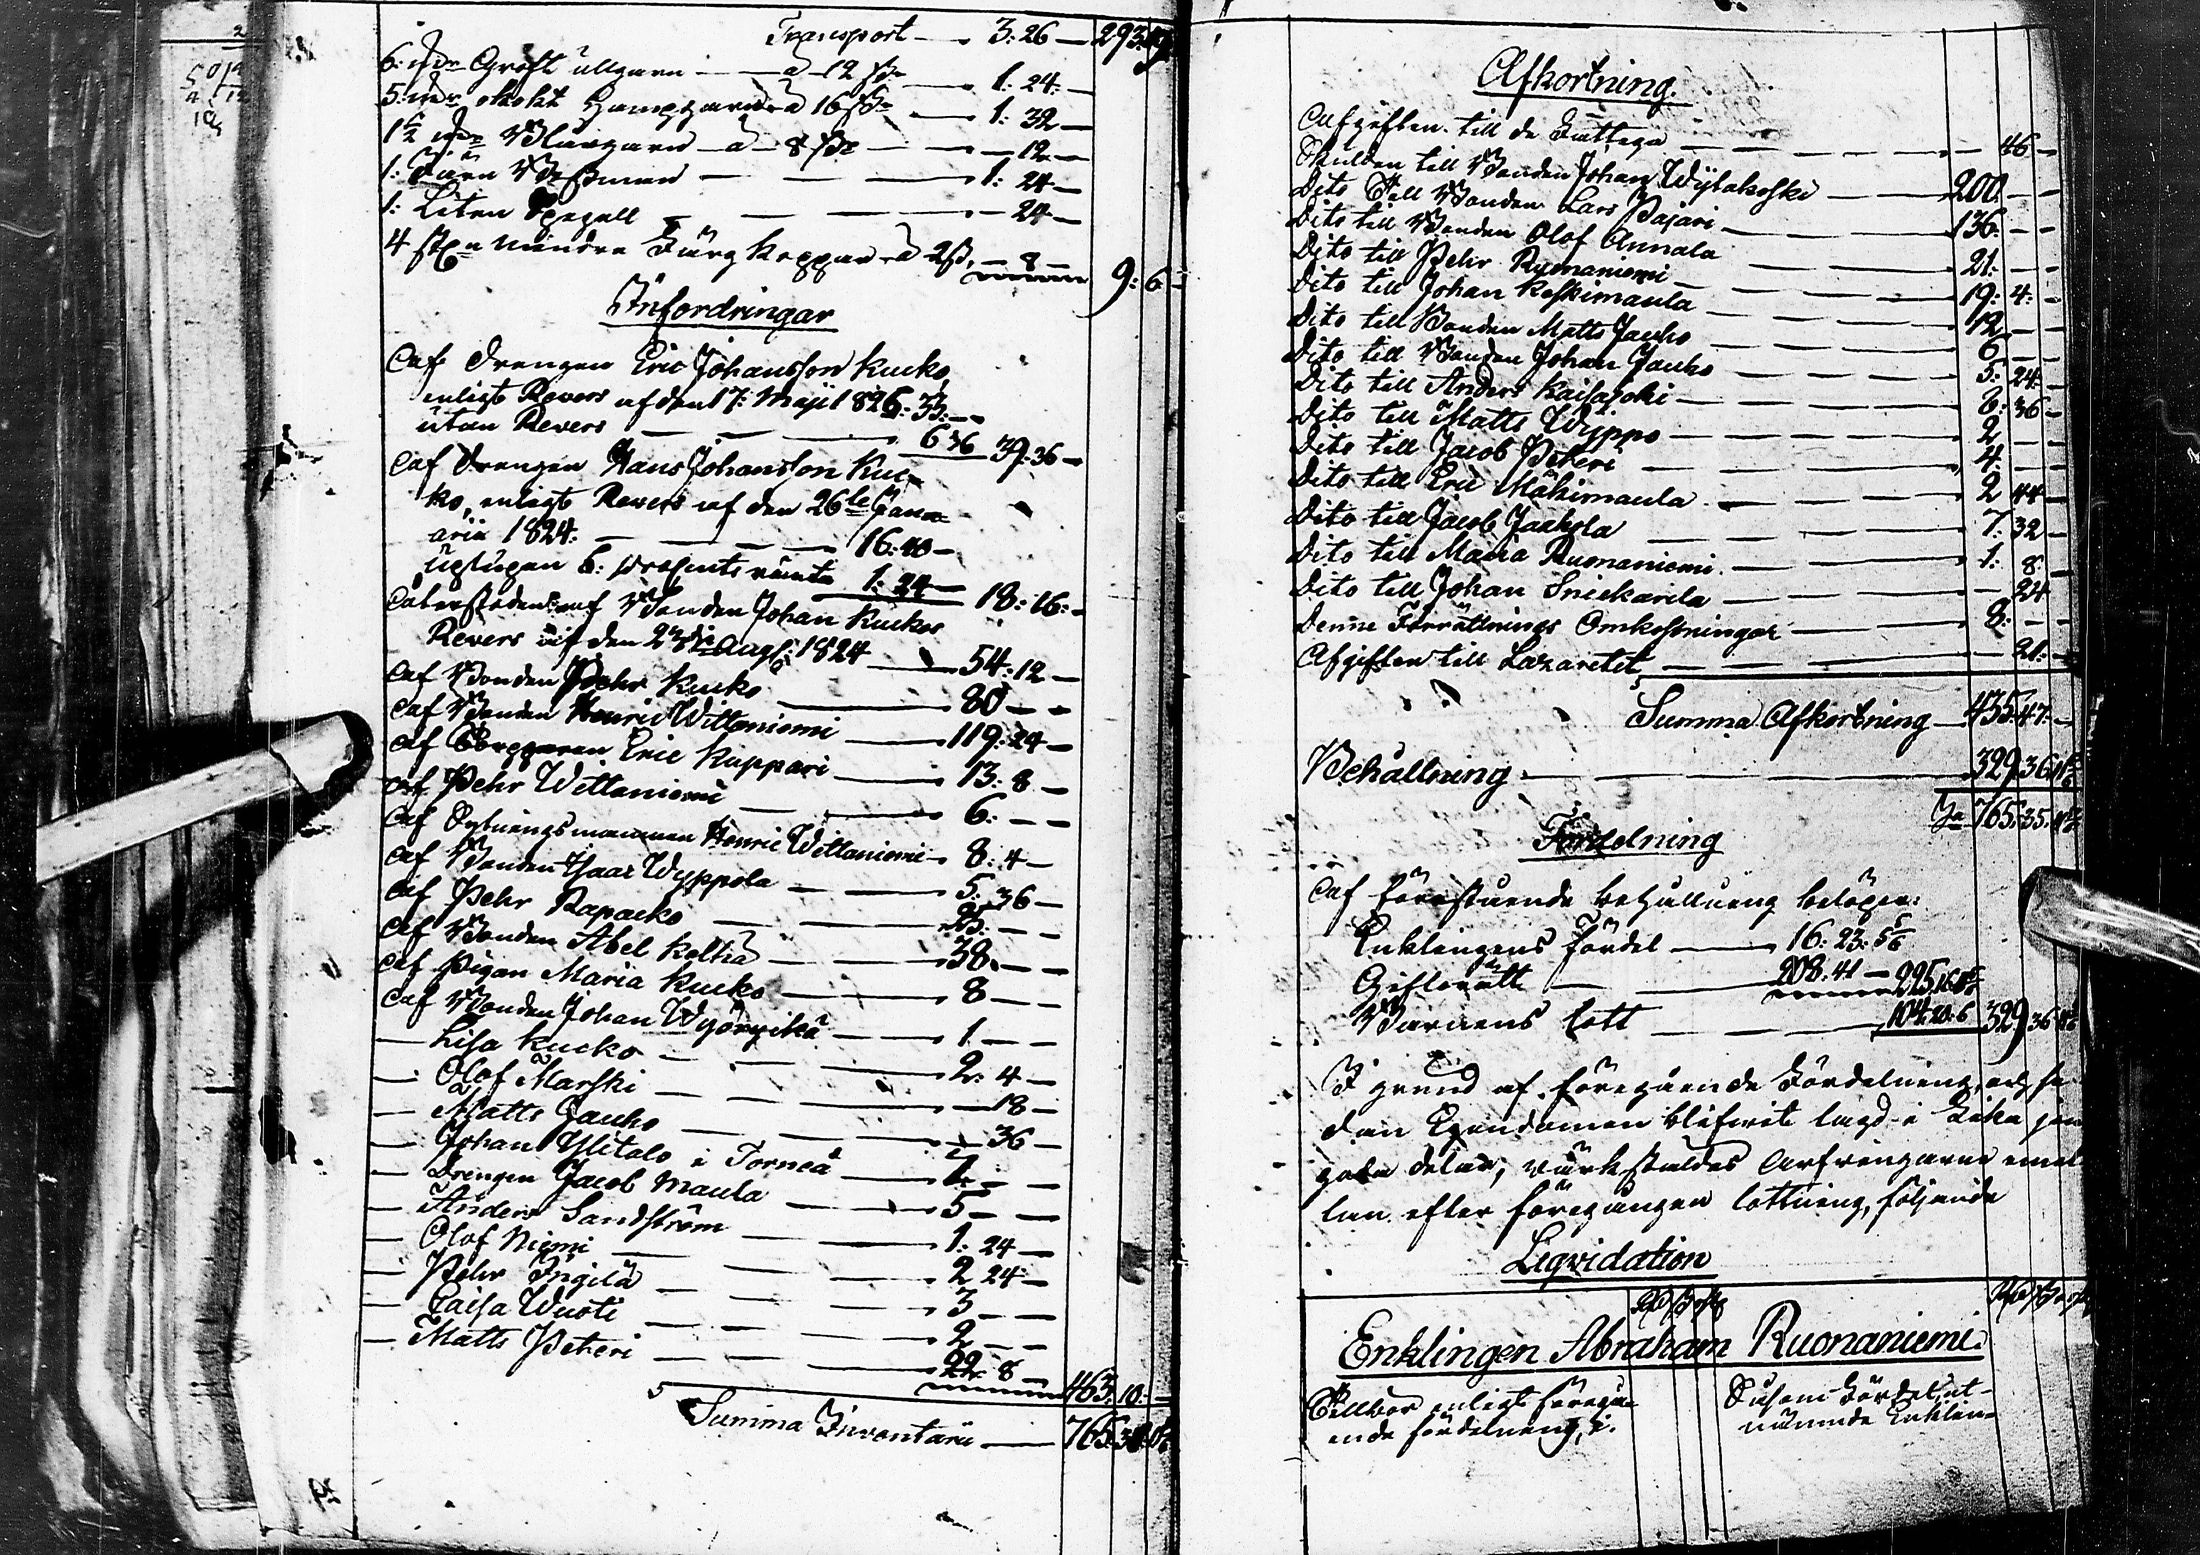 Transport — 3: 26 — 293:
6: Groft ullgarn — a 12 sk — 1: 24: —
5: okokt Hampgarn a 16 sk — 1: 32 —
1½ Blaargarn — a 8 sk — — 12 —
1: Besman — 1: 24 —
1: Liten Spegell — 24 —
4 st mindre Färg koppar a 2 sk. — 8 — 9: 6 —
Infordringar
Af Drengen Eric Johansson Kucko,
enligt Revers af den 17: Maji 1826: 33: —
utan Revers — 6 36 39: 36 —
Af Drengen Hans Johansson Kuc-
ko, enligt Revers af den 26te Janu-
arii 1824: — 16: 40 —
6: procents ränta 1: 24 — 18: 16: —
Återstoden af Bonden Johan Kuckos
Revers af den 23die Aug: 1824 — 54: 12 —
Af Bonden Pehr Kucko — 80 — —
Af Bonden Henric Wittaniemi — 119: 24 —
Af Eric Kuppari — 13: 8 —
Af Pehr Wittaniemi — 6: — —
Af Ordningsmannen Henric Wittaniemi — 8: 4 —
Af Bonden Isaac Wyppola — 5: 36 —
Af Pehr Rapacko — 25: — —
Af Bonden Abel Koltha — 38. — —
Af Pigan Maria Kucko — 8 — —
Af Bonden Johan Wyöryikä — 1 — —
— Lisa Kucko — 2: 4 —
— Olof Marski — 18 —
— Matts Jauho — 36 —
— Johan Ylitalo i Torneå — 1 — —
— Drengen Jacob Maula — 5 — —
— Anders Sandström — 1: 24 —
— Olof Niemi — 2 24: —
— Pehr Ingilä — 3 — —
— Caisa Wuoti — 2 — —
— Matts Peteri — 22: 8 — 463: 10: —
Summa Inventarii — 765:
Afkortning.
Afgiften till de Fattiga — 46 —
Skulden till Bonden Johan Wylakoski — 200. — —
Dito Till Bonden Lars Pajari — 136: — —
Dito till Bonden Olof Annala — 21: — —
Dito till Pehr Ruonaniemi — 19: 4: —
Dito till Johan Koskimaula — 12 — —
Dito till Bonden Matts Jauho — 6 — —
Dito till Bonden Johan Jauho — 5: 24: —
Dito till Anders Kaisajoki — 6: 36 —
Dito till Matts Wyppo — 2 — —
Dito till Jacob Peteri — 4: — —
Dito till Eric Mäkimaula — 2 44 —
Dito till Jacob Jaakola — 7: 32 —
Dito till Maria Ruonaniemi — 1: 8: —
Dito till Johan Snickarila — 24
Denne Förrättnings Omkostningar — 8: — —
Afgiften till Lazarettet — 21: —
Summa Afkortning — 435: 47: —
Behållning — 329. 36.
765. 35.
Fördelning
Af förestående behållning belöper:
Enklingens fördel — 16: 23: 5
Giftorätt — 208. 41 — 225, 16
Barnens lott — 104: 20: 6 329 36
I grund af föregående Fördelning, och se-
dan Egendomen blifwit lagd i lika
goda delar, värkställdes Arfvingarne emel-
lan efter föregången lottning, följande
Liqvidation
Enklingen Abraham Ruonaniemi.
Tillkom enligt föregå-
ende fördelning, i.
Såsom Fördel, ut-
nämnde Enklin-